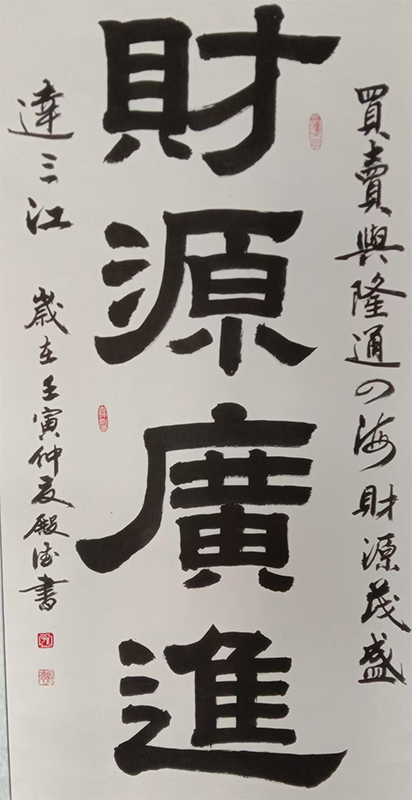 買賣興隆通四海財源茂盛
財源廣進
達三江 歲在壬寅仲夏殿書